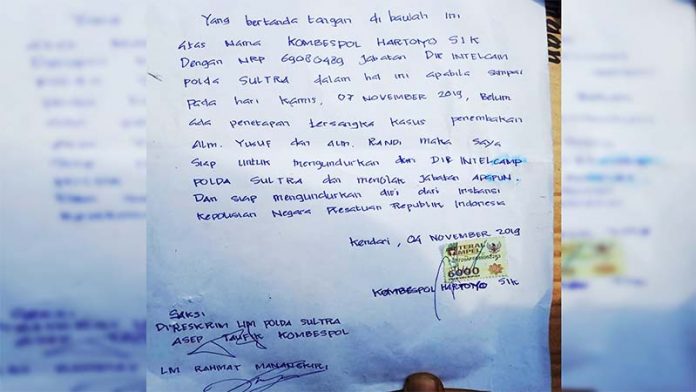 Yang bertanda tangan di bawah ini
Atas Nama KOMBESPOL HARTOYO SIK
Dengan NRP 69080489 Jabatan DIR INTELCAM
POLDA SULTRA dalam hal ini apabila sampai
Pada hari Kamis, 07 NOVEMBER 2019, Belum
ada penetapan tersangka kasus penembakan
Alm. Yusuf dan alm. RANDI maka saya
siap untuk mengundurkan diri DIR INTELCAMP
POLDA SULTRA dan menolak Jabatan APAPUN.
Dan siap mengundurkan diri dari Instansi
Kepolisian Negara Presatuan Republik Indonesia
Kendari, 04 NOVEMBER 2019
TERAI
EMPEL
6000
KOMBESPOL HARTOYO SIK
SAKSI
DIRESKRIM UM POLDA SULTRA
ASEP TAUFIK KOMBESPOL
LM RAHMAT